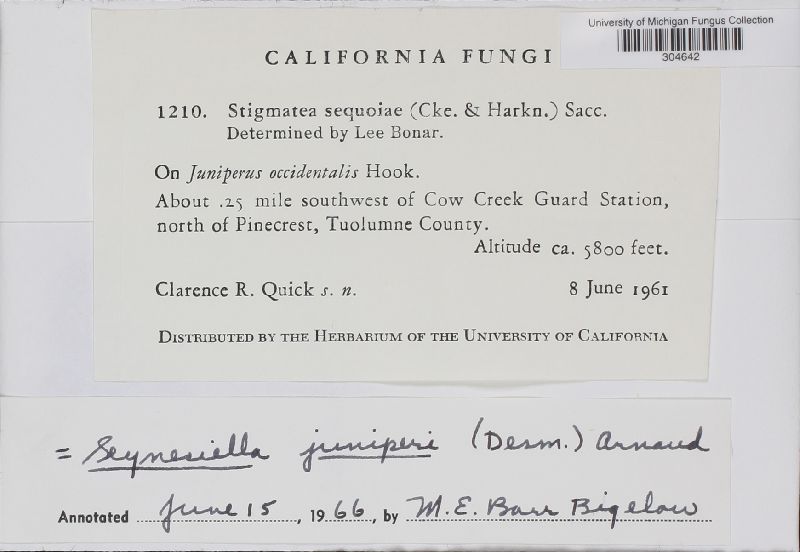 University of Michigan Fungus Collection
304642
CALIFORNIA FUNGI
1210. Stigmatea sequoiae (Cke. & Harkn.) Sacc.
Determined by Lee Bonar.
On Juniperus occidentalis Hook.
About .25 mile southwest of Cow Creek Guard Station,
north of Pinecrest, Tuolumne County.
Altitude ca. 5800 feet.
Clarence R. Quick s. n. 8 June 1961
DISTRIBUTED BY THE HERBARIUM OF THE UNIVERSITY OF CALIFORNIA
= Seynesiella juniperi (Desm.) Arnaud
Annotated June 15, 1966, by M. E. Barr Bigelow